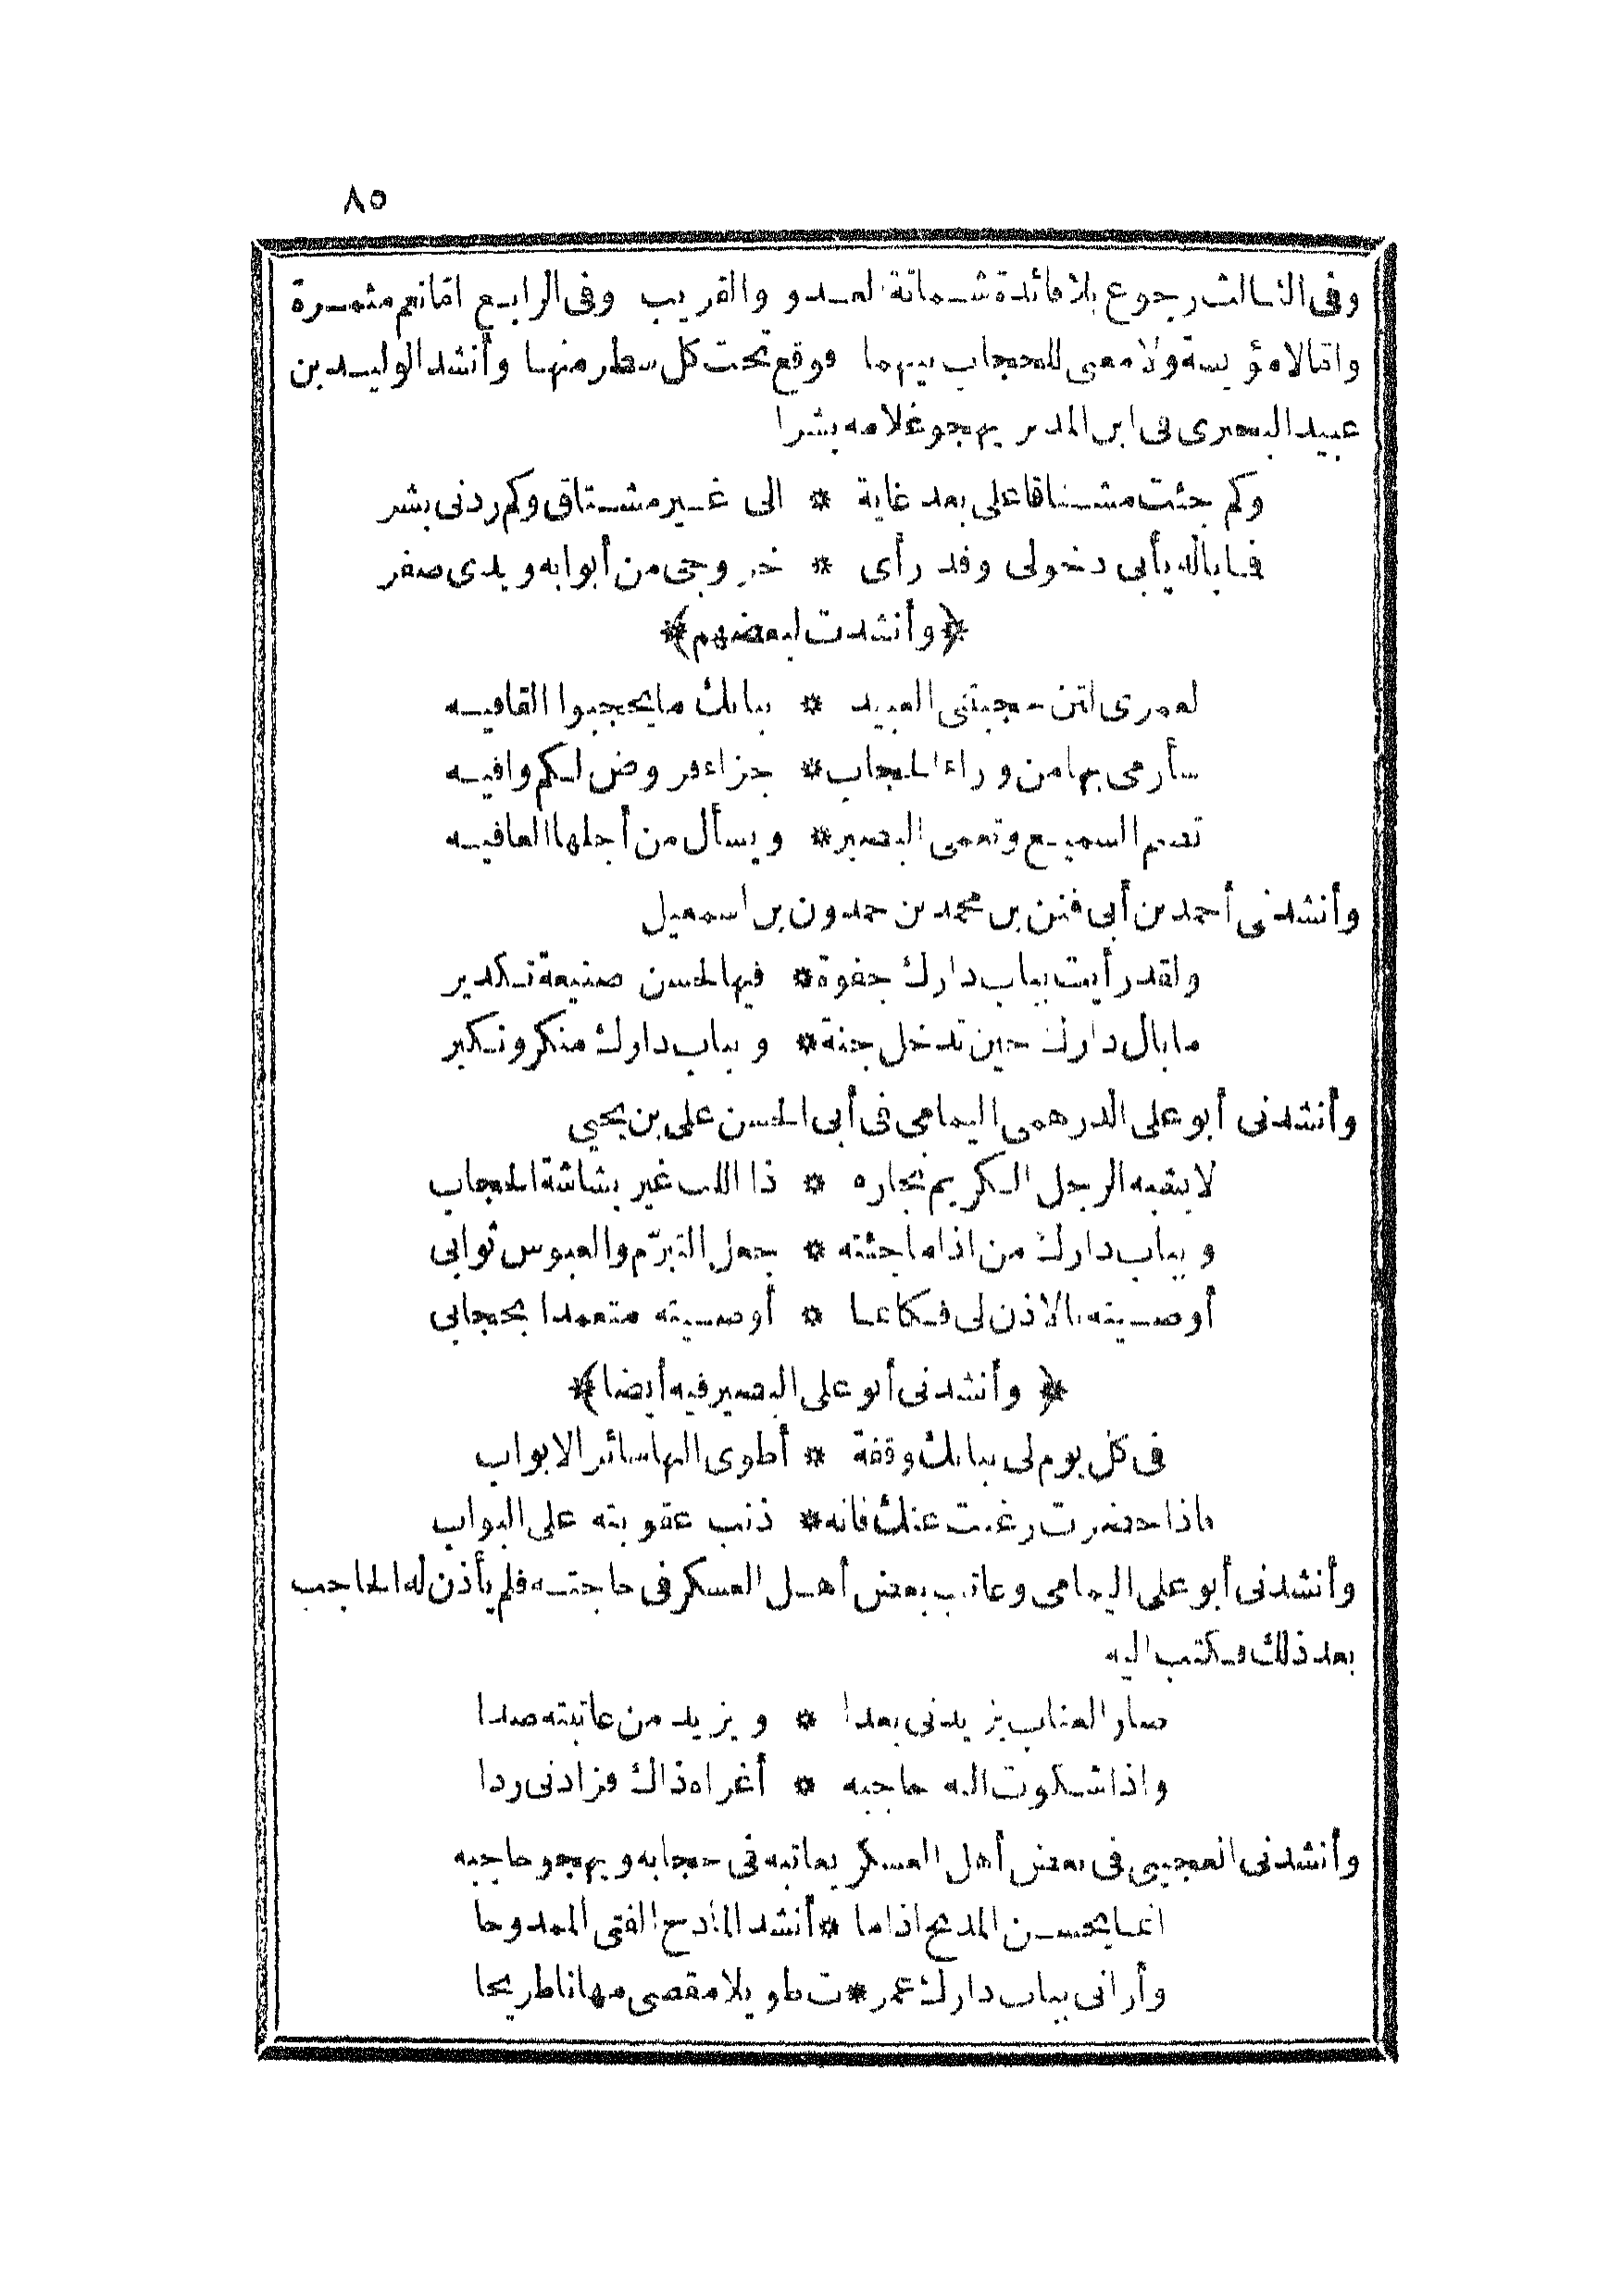 ٨٥
وفى الثالث رجوع بلا فائدة شماتة العدو والقريب وفى الرابع امّا نعم مثمرة
وامّا لا مؤيسة ولا معنى للحجاب بينهما فوقع تحت كل سطر منها وأنشد الوليد بن
عبيد البحترى فى ابن المدبر يهجو غلامه بشرا
وكم جئت مشتاقا على بعد غاية * الى غير مشتاق وكم ردنى بشر
فما باله يأبى دخولى وقد رأى * خروجى من أبوابه ويدى صفر
﴿وأنشدت لبعضهم﴾
لعمرى لئن حجبتنى العبيد * ببابك ما يحجبوا القافيه
سأرمى بها من وراء الحجاب * جزاء قروض لكم وافيه
تصم السميع وتعمى البصير * ويسأل من أجلها العافيه
وأنشدنى أحمد بن أبى فنن بن محمد بن حمدون بن اسمعيل
ولقد رأيت بباب دارك جفوة * فيها لحسن صنيعة تكدير
ما بال دارك حين تدخل جنة * وبباب دارك منكر ونكير
وأنشدنى أبو على الدرهمى اليمامى فى أبى الحسن على بن يحيى
لا يشبه الرجل الكريم نجاره * ذا اللب غير بشاشة الحجاب
وبباب دارك من اذا ما جئته * جعل التبرّم والعبوس ثوابى
أوصيته بالاذن لى فكأنما * أوصيته متعمدا بحجابى
﴿وأنشدنى أبو على البصير فيه أيضا﴾
فى كل يوم لى ببابك وقفة * أطوى اليها سائر الابواب
فاذا حضرت رغبت عنك فانه * ذنب عقوبته على البواب
وأنشدنى أبو على اليمامى وعاتب بعض أهل العسكر فى حاجته فلم يأذن له الحاجب
بعد ذلك فكتب اليه
صار العتاب يزيدنى بعدا * ويزيد من عاتبته صدا
واذا شكوت اليه حاجبه * أغراه ذاك فزادنى ردا
وأنشدنى العجيبى فى بعض أهل العسكر يعاتبه فى حجابه ويهجو حاجبه
انما يحسن المديح اذا ما * أنشد المادح الفتى الممدوحا
وأرانى بباب دارك عمر * ت طويلا مقصى مهانا طريحا